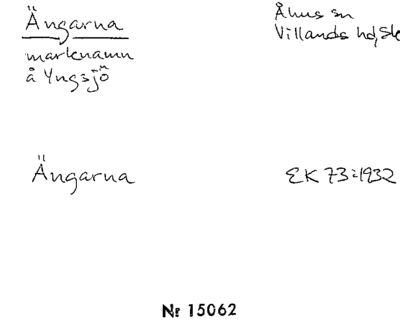 Ängarna
marknamn
å Yngsjö
Åhus sn
Villands hd, Sk
Ängarna
EK 73:1932
Nr 15062